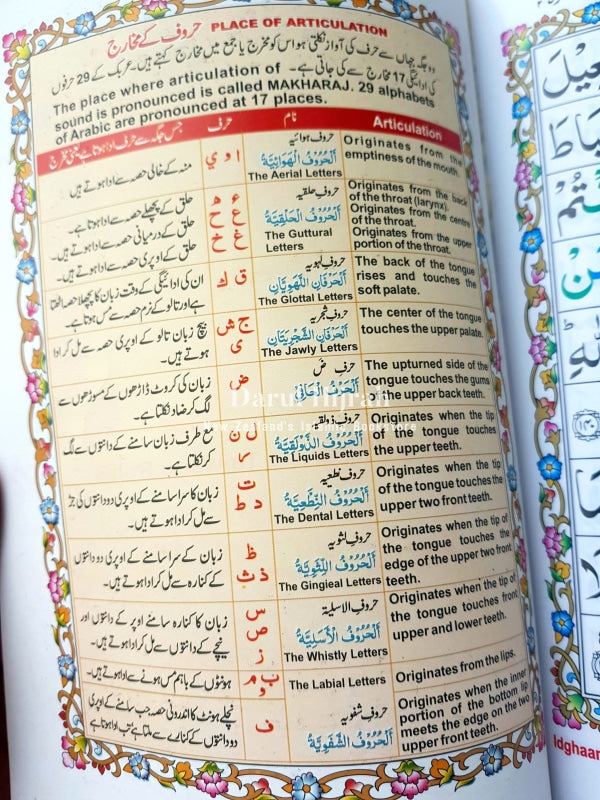 حروف کے مخارج PLACE OF ARTICULATION
وہ جگہ جہاں سے حرف کی آواز نکلتی ہو اس کو مخرج یا جمع میں مخارج کہتے ہیں۔ عربی کے 29 حرفوں
کی ادائیگی 17 مخارج سے کی جاتی ہے۔ The place where articulation of
sound is pronounced is called MAKHARAJ. 29 alphabets
of Arabic are pronounced at 17 places.
جس جگہ سے حرف ادا ہوتا ہے یعنی مخرج
حرف
نام
Articulation
منہ کے خالی حصہ سے ادا ہوتے ہیں
ا و ي
حروف ہوائیہ
اَلْحُرُوْفُ الْهَوَائِيَّةُ
The Aerial Letters
Originates from the
emptiness of the mouth.
حلق کے پچھلے حصہ سے ادا ہوتا ہے۔
حلق کے درمیانی حصہ سے ادا ہوتے ہیں۔
حلق کے اوپری حصہ سے ادا ہوتے ہیں۔
ء ه
ع ح
غ خ
حروف حلقیہ
اَلْحُرُوْفُ الْحَلْقِيَّةُ
The Guttural
Letters
Originates from the back
of the throat (larynx).
Originates from the centre
of the throat.
Originates from the upper
portion of the throat.
ان کی ادائیگی کے وقت زبان کا پچھلا حصہ اٹھتا
ہے اور تالو کے نرم حصہ سے مس ہوتا ہے۔
ق ك
حروف لہویہ
اَلْحَرْفَانِ اللَّهَوِيَّانِ
The Glottal Letters
The back of the tongue
rises and touches the
soft palate.
بیچ زبان تالو کے اوپری حصہ سے مل کر ادا
ہوتے ہیں۔
ج ش
ی
حروف شجریہ
اَلْحَرْفَانِ الشَّجْرِيَّتَانِ
The Jawly Letters
The center of the tongue
touches the upper palate.
زبان کی کروٹ ڈاڑھوں کے مسوڑھوں سے
لگ کر ضاد نکلتا ہے۔
ض
حرف ض
The upturned side of the
tongue touches the gums
of the upper back teeth.
Darul Hijrah
مع طرف زبان سامنے کے دانتوں سے لگ
کر نکلتا ہے۔
ل ن
ر
حروف ذولقیہ
اَلْحُرُوْفُ الذَّوْلَقِيَّةُ
The Liquids Letters
Originates when the tip
of the tongue touches
the upper teeth.
زبان کا سرا سامنے کے اوپری دو دانتوں کی جڑ
سے مل کر ادا ہوتے ہیں۔
ت
د ط
حروف نطعیہ
اَلْحُرُوْفُ النِّطْعِيَّةُ
The Dental Letters
Originates when the tip
of the tongue touches the
upper two front teeth.
زبان کے سرا سامنے کے اوپری دو دانتوں
کے کنارہ سے مل کر ادا ہوتے ہیں۔
ظ
ذ ث
حروف لثویہ
اَلْحُرُوْفُ اللِّثَوِيَّةُ
The Gingieal Letters
Originates when the tip of
the tongue touches the
edge of the upper two front
teeth.
زبان کا کنارہ سامنے اوپر کے دانتوں اور
نیچے کے دانتوں سے مل کر ادا ہوتے ہیں۔
س
ص
ز
حروف الاسلیۃ
اَلْحُرُوْفُ الْأَسَلِيَّةُ
The Whistly Letters
Originates when the tip of
the tongue touches front
upper and lower teeth.
ہونٹوں کے باہم مس ہونے سے ادا ہوتے ہیں۔
ب م
و
The Labial Letters
Originates from the lips.
نچلے ہونٹ کا اندرونی حصہ جب سامنے کے اوپری
دو دانتوں کے کنارے سے ملتا ہے تب ادا ہوتا ہے
ف
حروف شفویہ
اَلْحُرُوْفُ الشَّفَوِيَّةُ
Originates when the inner
portion of the bottom lip
meets the edge on the two
upper front teeth.
Idghaam